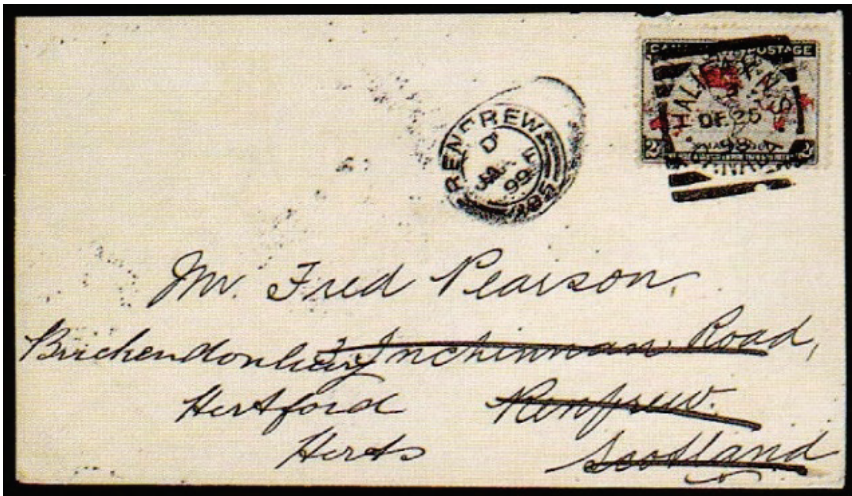 CANADA POSTAGE
HALIFAX N.S.
2
DE 25
98
CANADA
XMAS 1898
2 2
RENFREW
D
JA
99
Mr. Fred Pearson,
Brickendonbury 3 Inchinnan Road,
Hertford Renfrew.
Herts Scotland